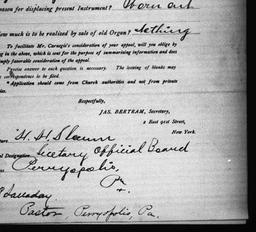 eason for displacing present Instrument? Worn out
ow much is to be realized by sale of old Organ? Nothing
To facilitate Mr. Carnegie's consideration of your appeal, will you oblige by
ing in the above, which is sent for the purpose of summarizing information and does
imply favorable consideration of the appeal.
Precise answer to each question is necessary. The issuing of blanks may
correspondence to be filed.
* Application should come from Church authorities and not from private
Respectfully,
JAS. BERTRAM, Secretary,
2 East 91st Street,
New York.
H. H.
Designation Secretary Official Board
Perryopolis,
Pa.
Pastor Perryopolis, Pa.